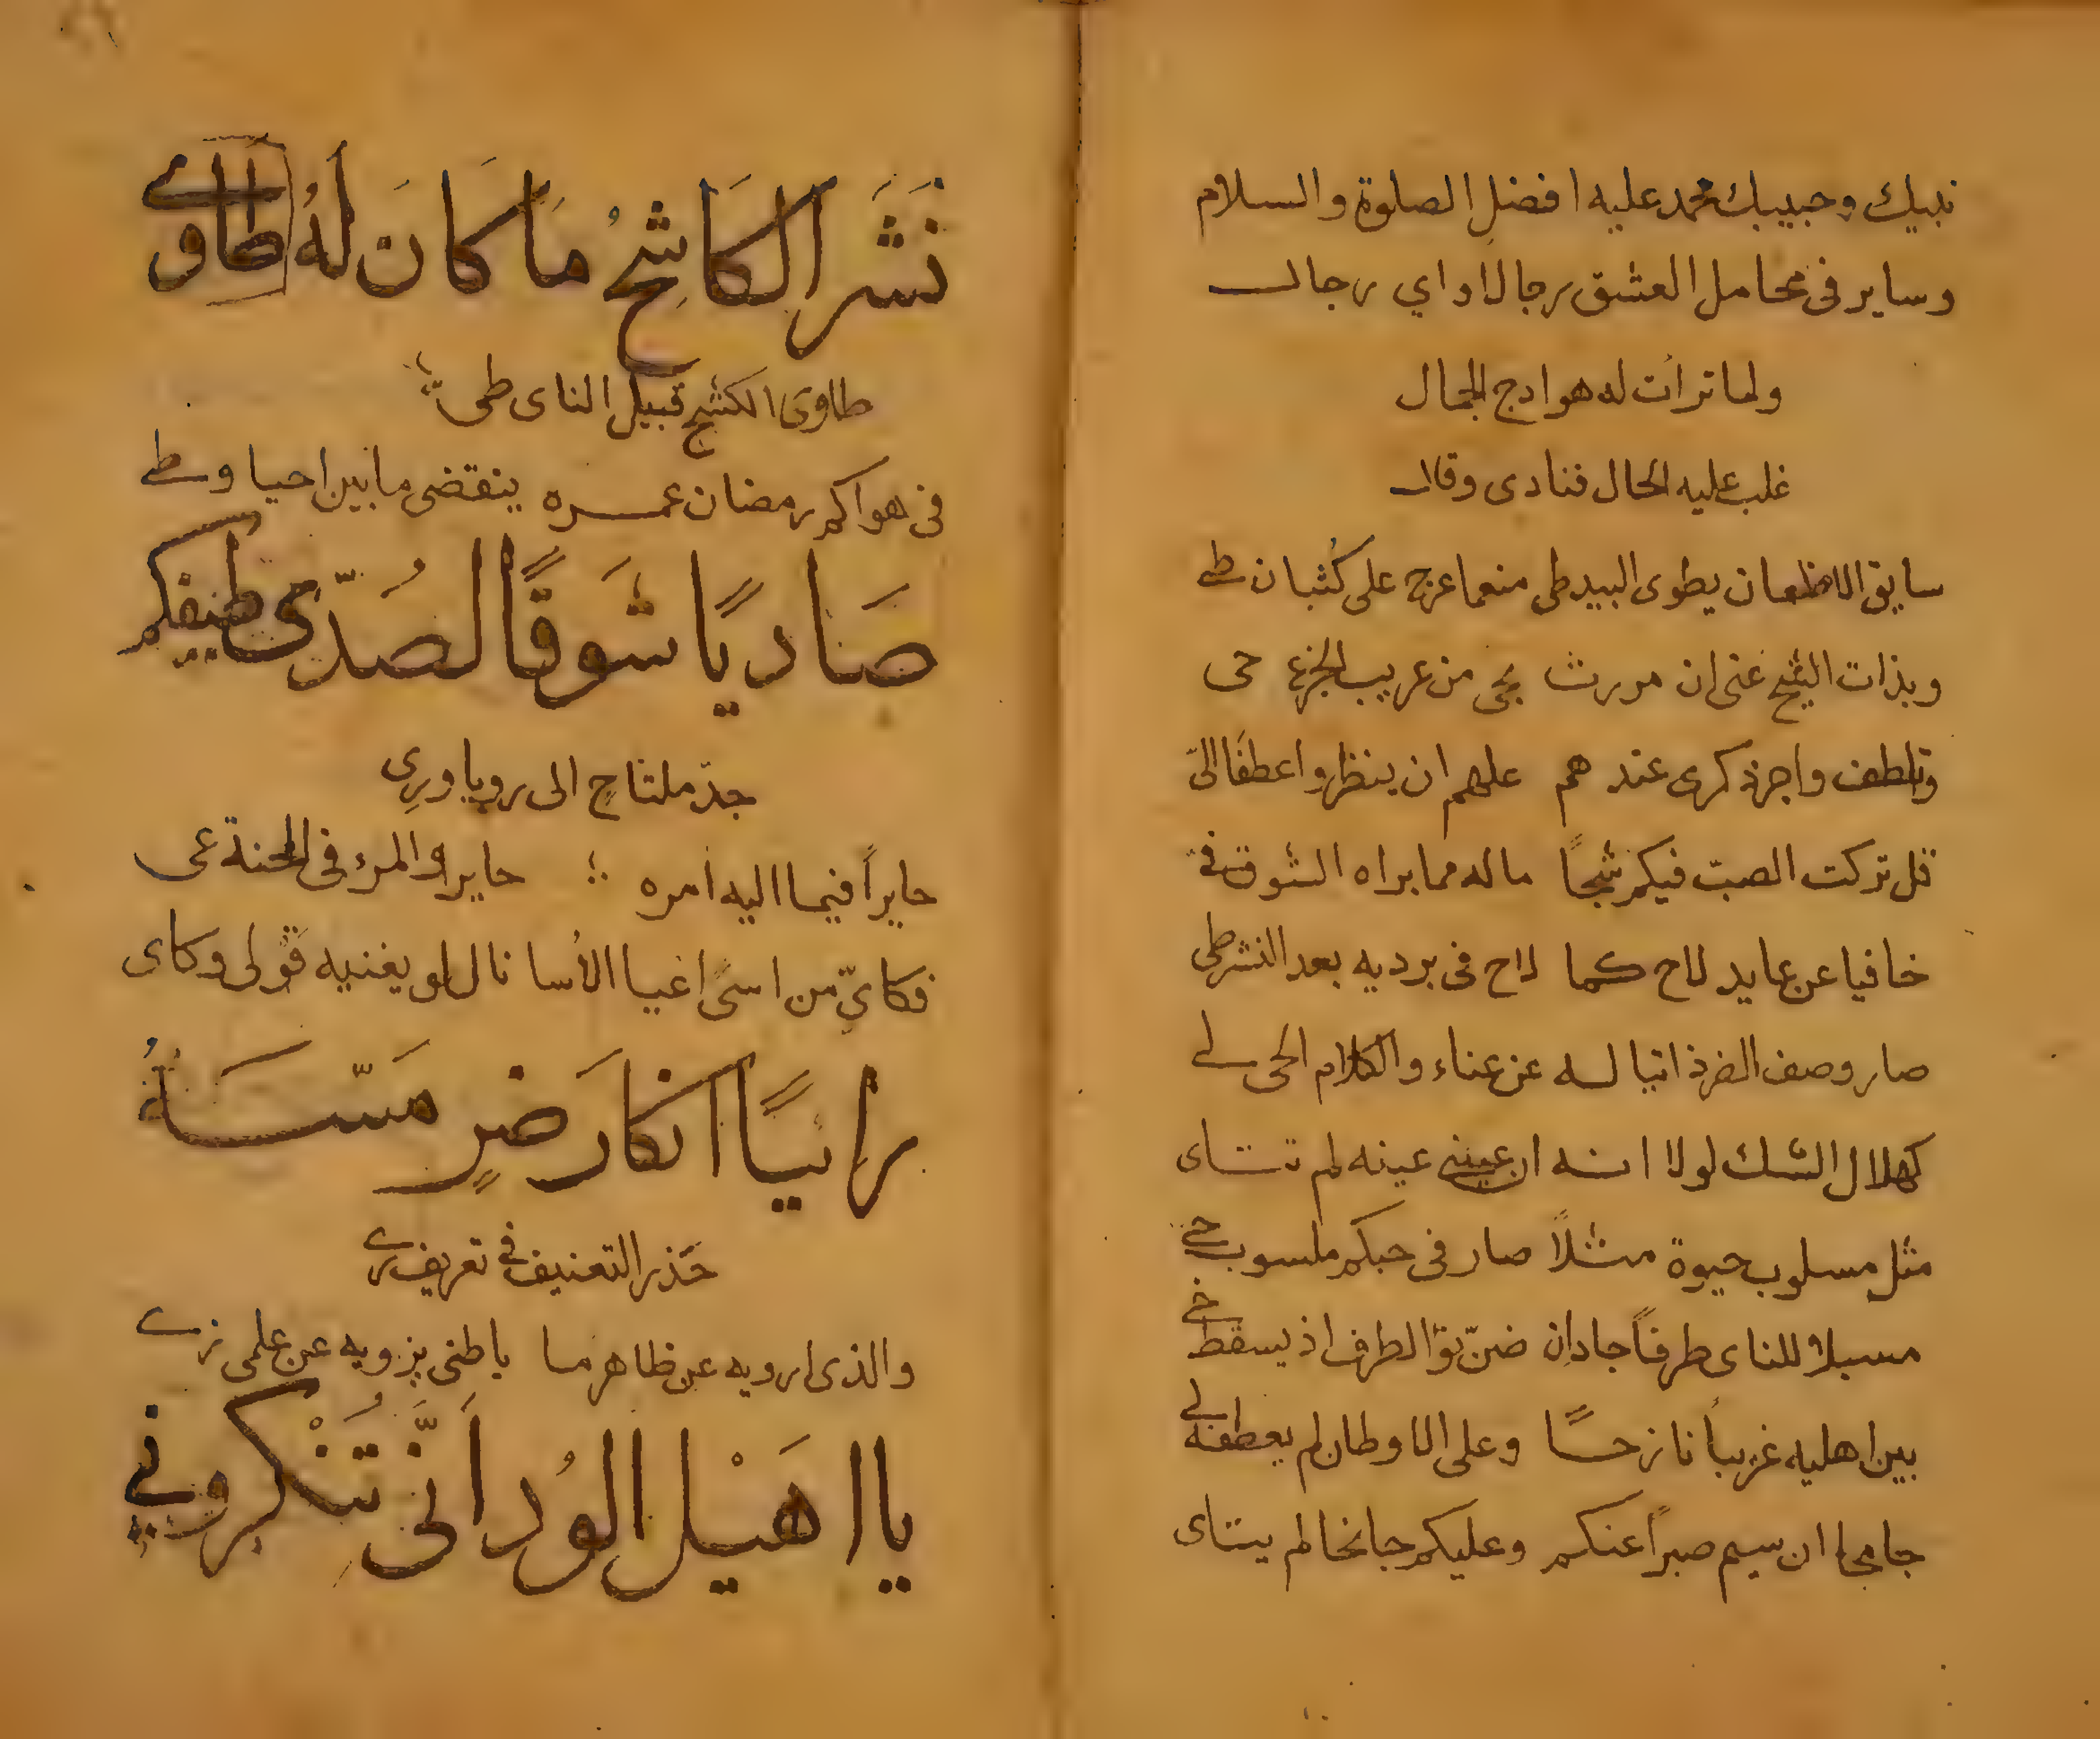 نبيك وحبيبك محمد عليه افضل الصلوة والسلام
وساير فى محامل العشق رجالا واي رجال
ولما ترأت له هوادج الجمال
غلب عليه الحال فنادى وقال
سايق الاظعان يطوى البيد طى منعما عرج على كُثبان طے
وبذات الشيح عنى ان مررت بحى من عريب الجزع حى
وتلطف واجر ذكرى عندهم علهم ان ينظروا عطفًا الىّ
قل تركت الصبّ فيكم شبحًا ماله مما براه الشوق فے
خافيا عن عايد لاح كما لاح فى برديه بعد النشر طى
صار وصف الضر ذاتيا له عن عناء والكلام الحى لے
كهلال الشك لولا انه ان عينى عينه لم تتاى
مثل مسلوب حيوة مثلاً صار فى حبكم ملسوب حے
مسبلا للناى طرفاً جاد ان ضنّ نوّ الطرف اذ يسقط خے
بين اهليه غريباً نازحاً وعلى الاوطان لم يعطفه لے
جامحا ان سيم صبراً عنكم وعليكم جانحا لم يتاى
نَشَر الكَاشِحُ مَا كَانَ لَهُ طاوي
طاوى الكشح قبيل الناى طى
فى هواكم رمضان عمره ينقضى ما بين احيا وطے
صَاديًا شَوقًا لصُدّى طيفكم
جدّ ملتاحٍ الى رويا ورِى
حايراً فيما اليه امره حاير والمرء فى المحنة عى
فكايّ من اسىً اعيا الأسا نال لو يغنيه قولى وكاى
رائيًا انكارَ ضرٍ مَسّهُ
حَذر التعنيف فے تعريف رے
والذى ارويه عن ظاهر ما باطنى يزويه عن علمى زے
يا اهَيْل الوُد اَنَّى تُنْكروني